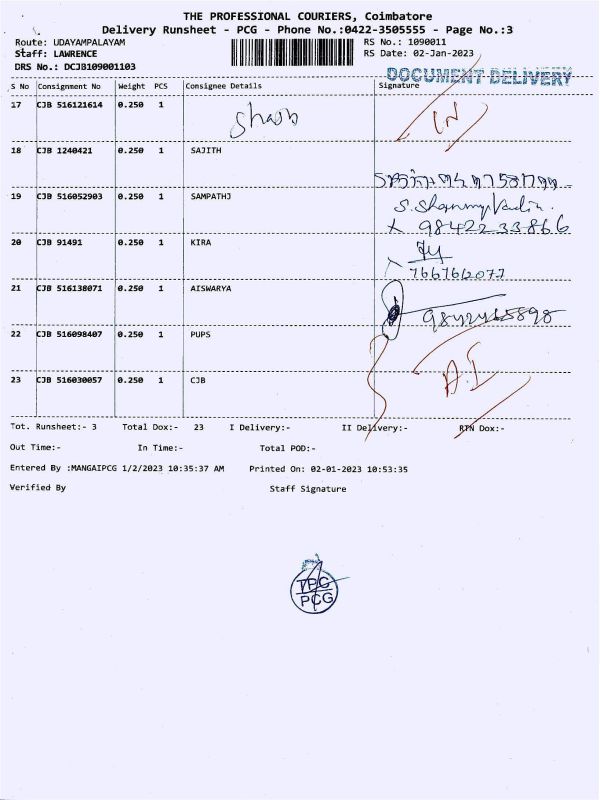 THE PROFESSIONAL COURIERS, Coimbatore
Delivery Runsheet - PCG - Phone No.:0422-3505555 - Page No.:3
Route: UDAYAMPALAYAM RS No.: 1090011
Staff: LAWRENCE RS Date: 02-Jan-2023
DRS No.: DCJB109001103
DOCUMENT DELIVERY
S No Consignment No Weight PCS Consignee Details Signature
17 CJB 516121614 0.250 1 IN
18 CJB 1240421 0.250 1 SAJITH
19 CJB 516052903 0.250 1 SAMPATHJ
9842233866
20 CJB 91491 0.250 1 KIRA
7667612077
21 CJB 516138071 0.250 1 AISWARYA
22 CJB 516098407 0.250 1 PUPS
23 CJB 516030057 0.250 1 CJB A.I
Tot. Runsheet:- 3 Total Dox:- 23 I Delivery:- II Delivery:- RTN Dox:-
Out Time:- In Time:- Total POD:-
Entered By :MANGAIPCG 1/2/2023 10:35:37 AM Printed On: 02-01-2023 10:53:35
Verified By Staff Signature
TPC
PCG